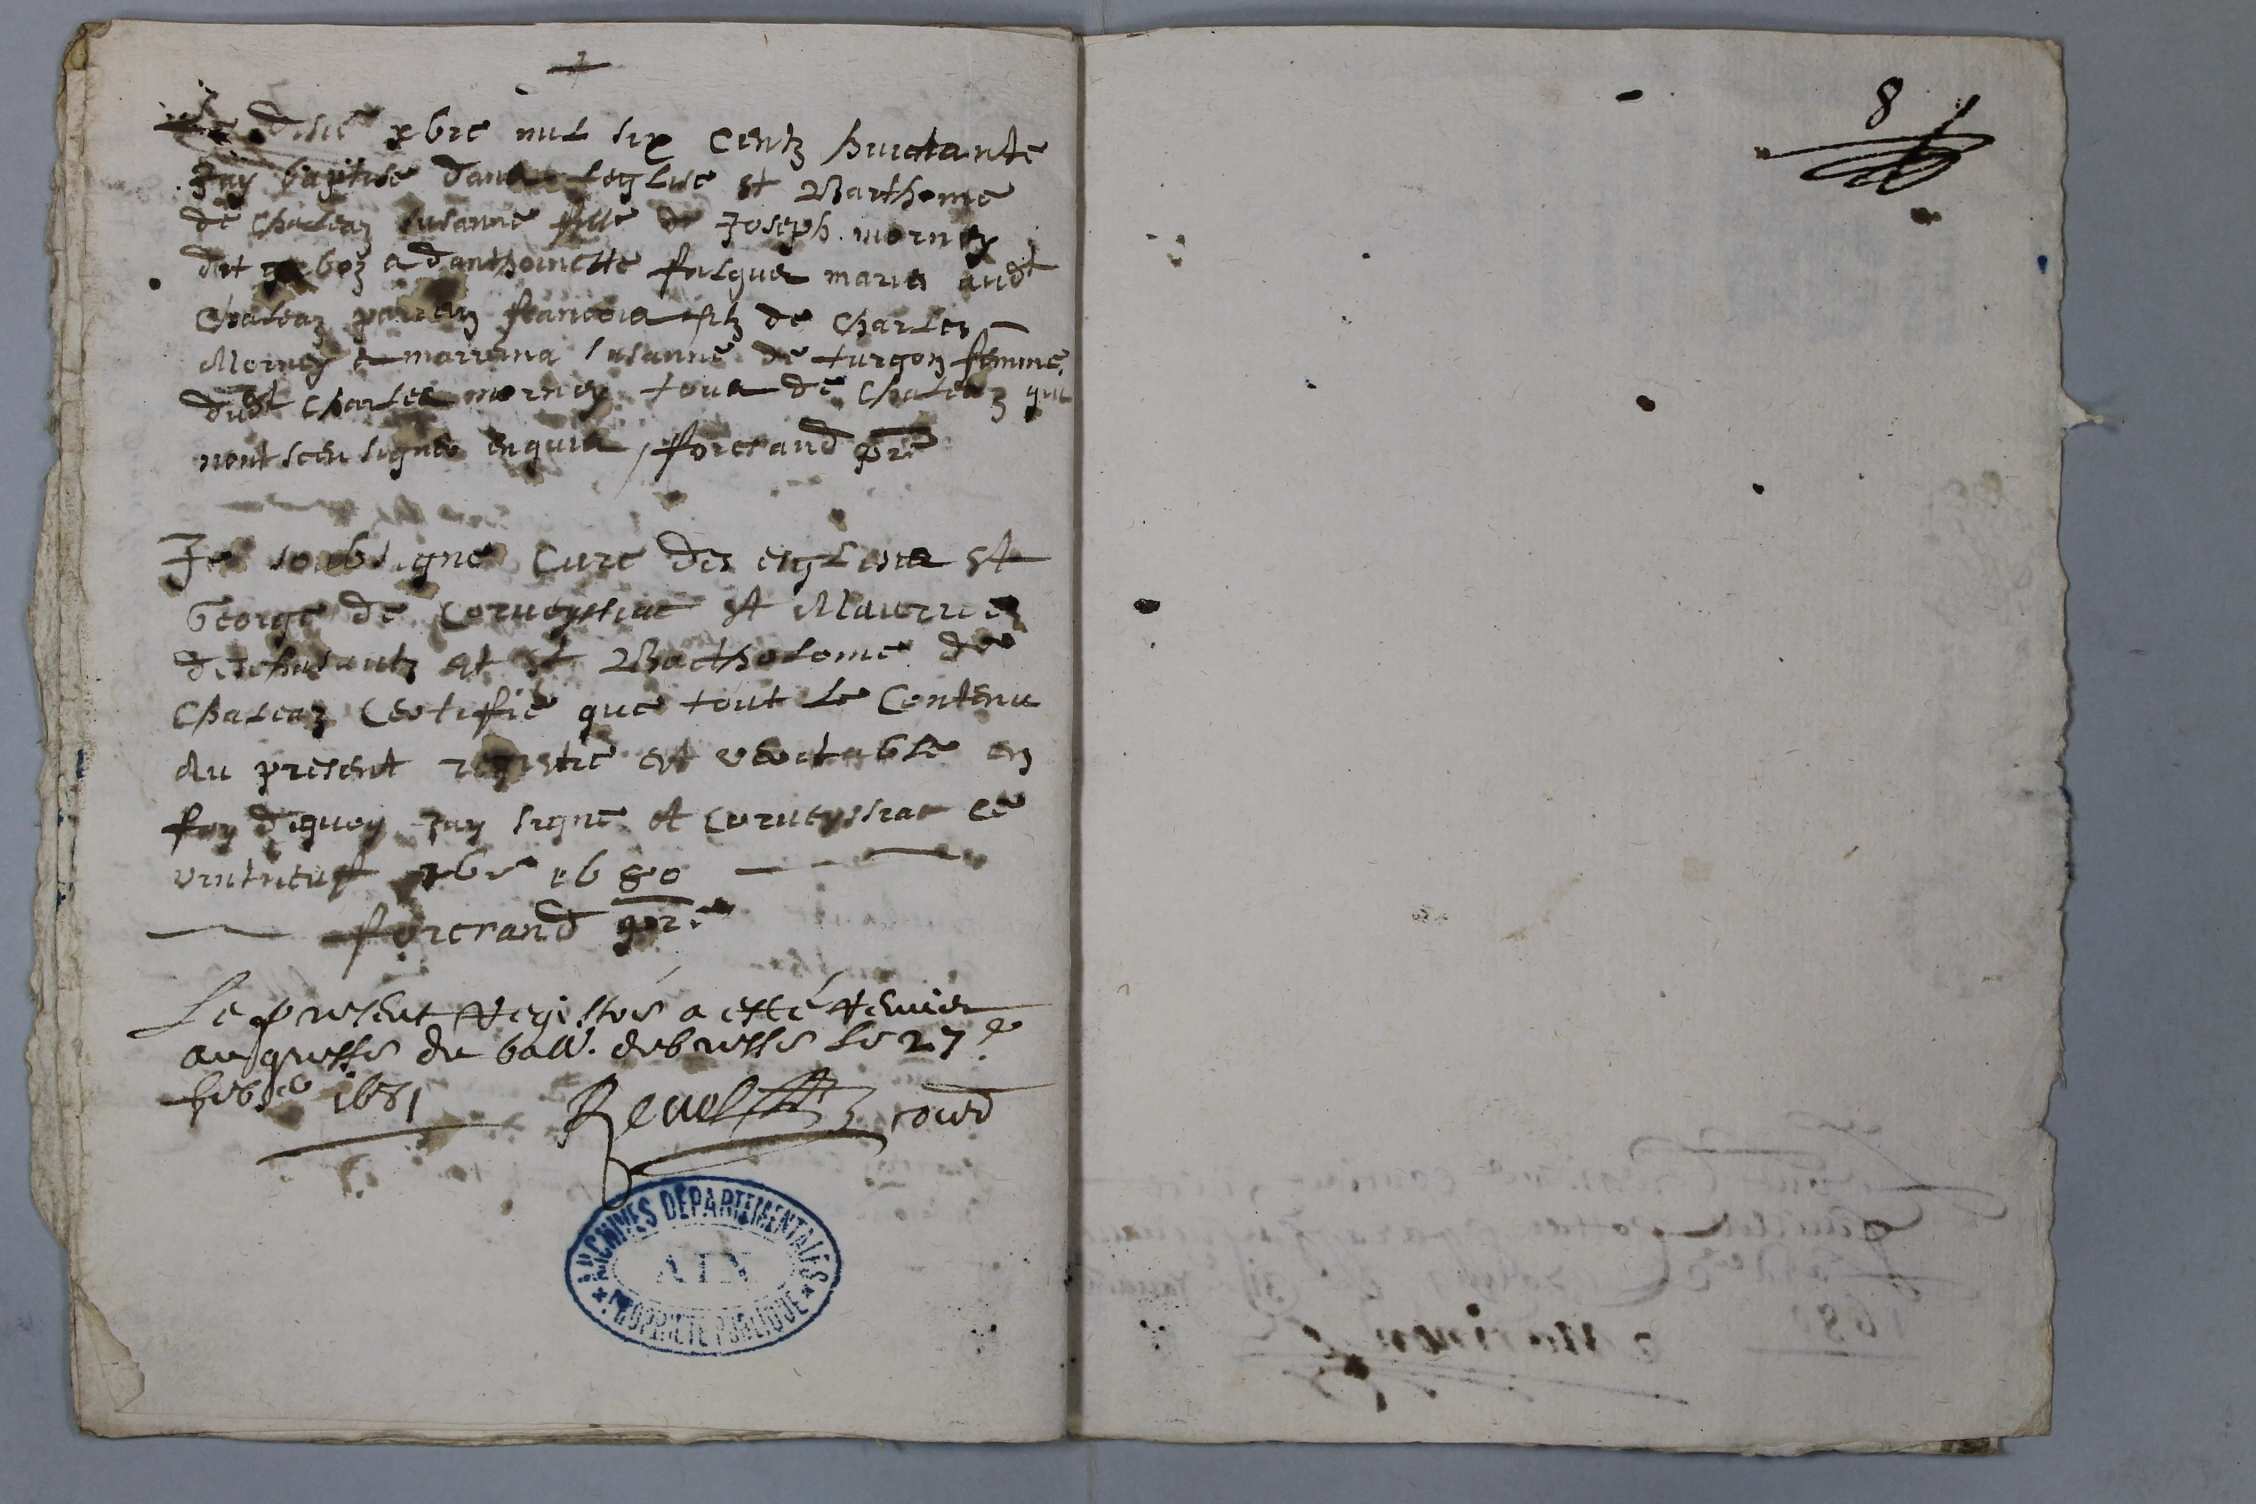 xbre mil six centz huictante
Jay baptise dans leglise st Barthome
de Chaleaz susanne fille de Joseph morney
dit a danthoinette falques maries aud
Chaleaz parrain francois filz de Charles
Morney & marrinna susanne de turgon femme
dud Charles morney tous de Chaleaz qui
nont sceu signer enquis / forcrand pr
Je soubsigne Cure des eiglises st
George de Corveyssiac st Maurice
deschasautz et st Bartholome de
Chaleaz Certifie que tout le Contenu
du present registre est veritable en
foy dequoy Jay signe A Corveyssiac ce
vintneuf xbre 1680
forcrand pr
Le present Registre a esté remis
au greffe du ball. de bresse le 27e
febre 1681
Revel
8
ARCHIVES DEPARTEMENTALES
AIN
PROPRIETE PUBLIQUE